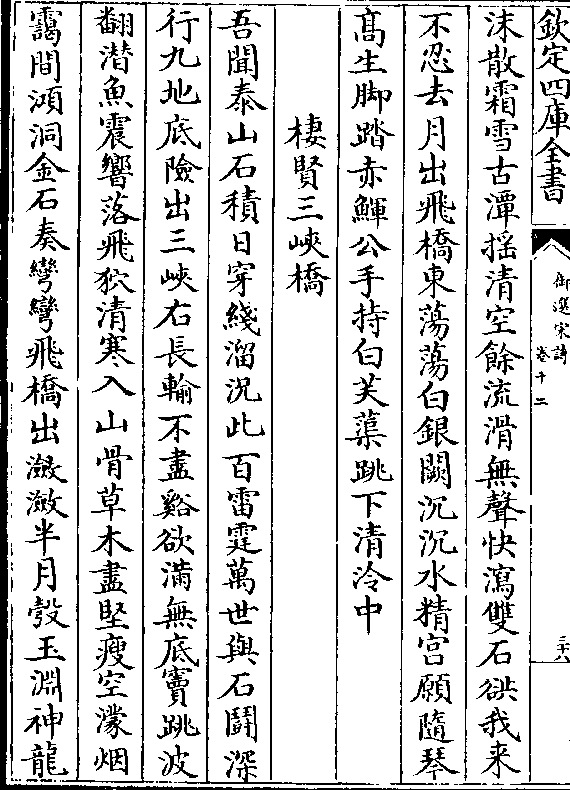 欽定四庫全書
御選宋詩
卷十二
三十八
沫散霜雪古潭揺清空餘流滑無聲快瀉雙石谼我来
不忍去月出飛橋東蕩蕩白銀闕沉沉水精宫願隨琴
髙生脚踏赤鯶公手持白芙蕖跳下清泠中
棲賢三峽橋
吾聞泰山石積日穿綫溜況此百雷霆萬世與石鬭深
行九地底險出三峽右長輸不盡谿欲滿無底竇跳波
翻潜魚震響落飛狖清寒入山骨草木盡堅瘦空濛烟
靄間澒洞金石奏彎彎飛橋出瀲瀲半月彀玉淵神龍